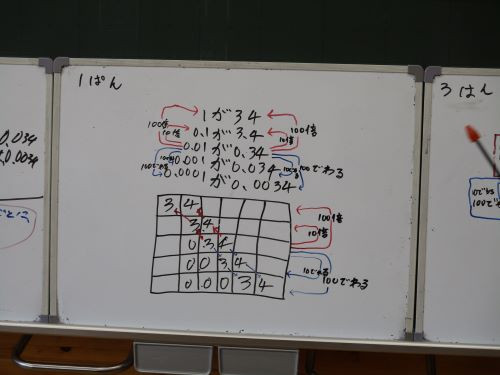 1ぱん
1が34
0.1が3.4
0.01が0.34
0.001が0.034
0.0001が0.0034
100倍
10倍
10倍
100倍
100でわる
100でわる
3 4
3 4
0 3 4
0 0 3 4
0 0 0 3 4
100倍
10倍
10でわる
100でわる
3ぱん
0.034
0.0034
100でわ